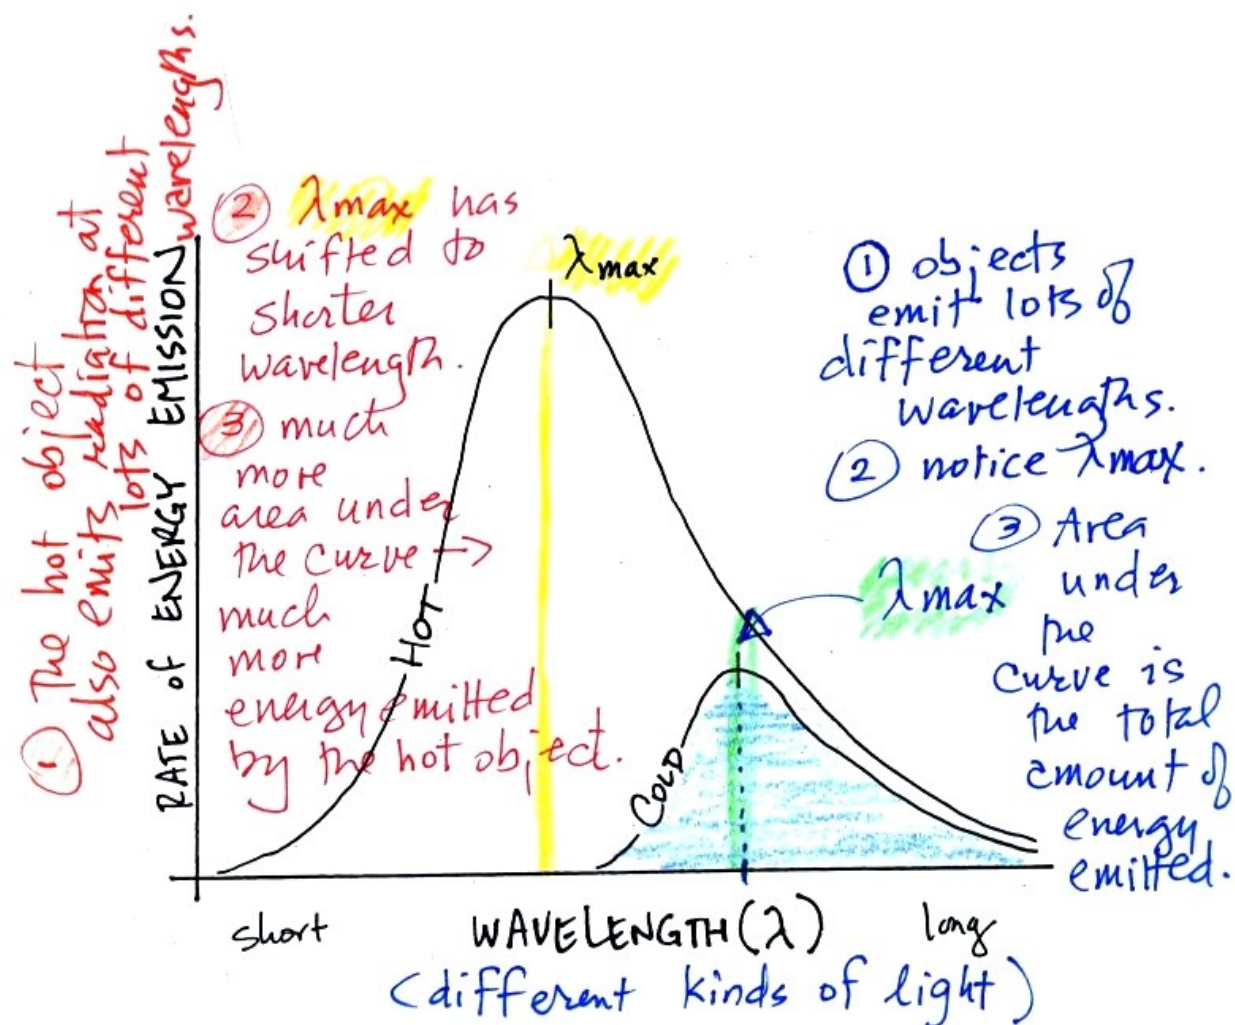 ① The hot object
also emits radiation at
lots of different
wavelengths.
② λmax has
shifted to
shorter
wavelength.
③ much
more
area under
the curve →
much
more
energy emitted
by the hot object.
RATE of ENERGY EMISSION
λmax
HOT
COLD
① objects
emit lots of
different
wavelengths.
② notice λmax.
③ Area
under
the
curve is
the total
amount of
energy
emitted.
λmax
short
WAVELENGTH (λ)
long
(different kinds of light)